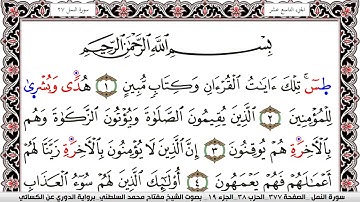 الجزء التاسع عشر
سورة النمل ٢٧
بِسْمِ اللَّهِ الرَّحْمَٰنِ الرَّحِيمِ
طسٓ ۚ تِلْكَ ءَايَٰتُ الْقُرْءَانِ وَكِتَابٍ مُّبِينٍ ١ هُدًى وَبُشْرَىٰ
لِلْمُؤْمِنِينَ ٢ الَّذِينَ يُقِيمُونَ الصَّلَوٰةَ وَيُؤْتُونَ الزَّكَوٰةَ وَهُم
بِالْآخِرَةِ هُمْ يُوقِنُونَ ٣ إِنَّ الَّذِينَ لَا يُؤْمِنُونَ بِالْآخِرَةِ زَيَّنَّا لَهُمْ
أَعْمَالَهُمْ فَهُمْ يَعْمَهُونَ ٤ أُولَٰئِكَ الَّذِينَ لَهُمْ سُوٓءُ الْعَذَابِ
سورة النمل - الصفحة ٣٧٧ - الحزب ٣٨ - الجزء ١٩ - بصوت الشيخ مفتاح محمد السلطني - برواية الدوري عن الكسائي